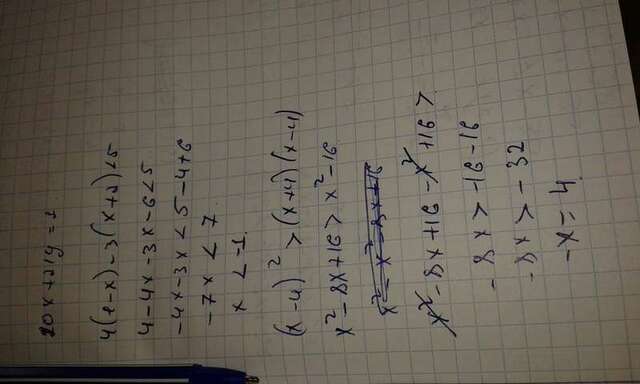 20x+21y=1
4(1-x)-3(x+2)<5
4-4x-3x-6<5
-4x-3x<5-4+6
-7x<7
x<-1
(x-4)²>(x+4)(x-4)
x²-8x+16>x²-16
x²-8x+16-x²+16>
-8x>-16-16
-8x>-32
-x=4